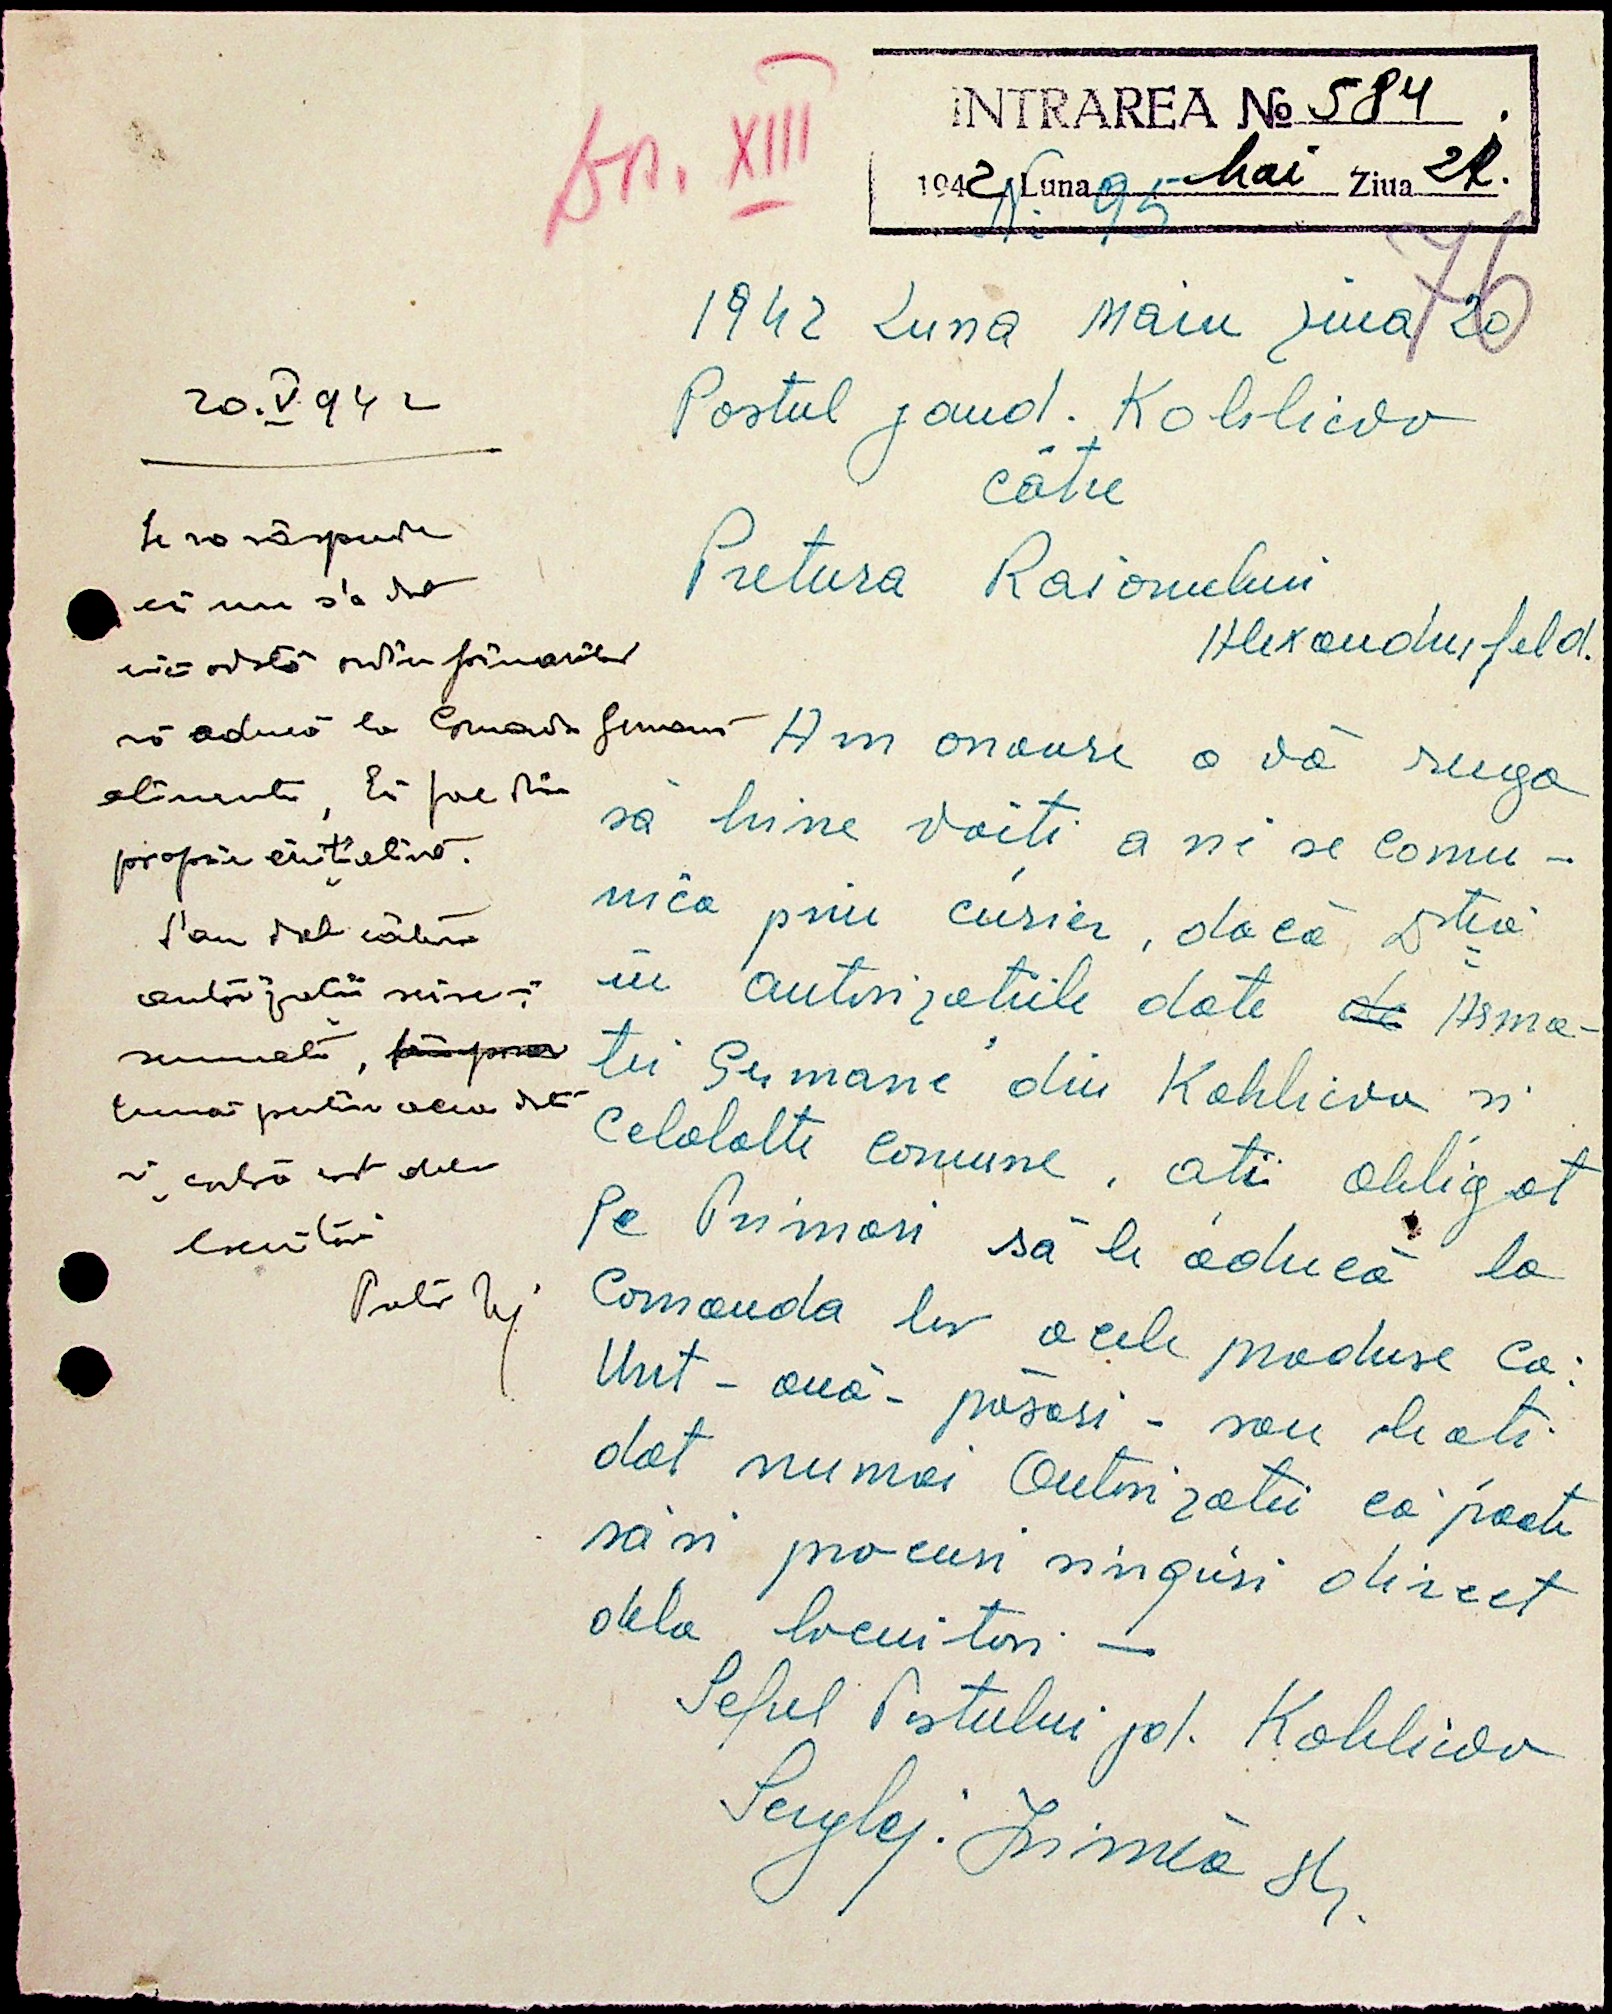 Ds. XIII
INTRAREA № 584
1942 Luna Mai Ziua 21.
Nr. 95
76
1942 Luna Maiu ziua 20
Postul jand. Kohlicvo
către
Pretura Raionului
Alexanderfeld.
Am onoare a vă ruga
să bine voiti a ni se comu-
nica prin curier, dacă Dtră
in autorizațiile date de Arma-
tei Germane din Kohlicvo si
celalalte comune, ati obligat
pe Primari să le aducă la
Comanda lor acele produse ca:
Unt - ouă - păsări - sau le ati
dat numai Autorizatii că poate
să si procuri singuri direct
dela locuitori —
Seful Postului jd. Kohlicvo
20.V.942
Se va răspunde
că nu s'a dat
ordin primarilor
să aducă la Comanda Germană
alimente, Ei fac din
proprie inițiativă.
S'au dat câteva
autorizații
locuitori